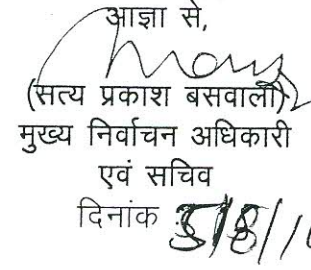 आज्ञा से,
(सत्य प्रकाश बसवाला)
मुख्य निर्वाचन अधिकारी
एवं सचिव
दिनांक 5/8/